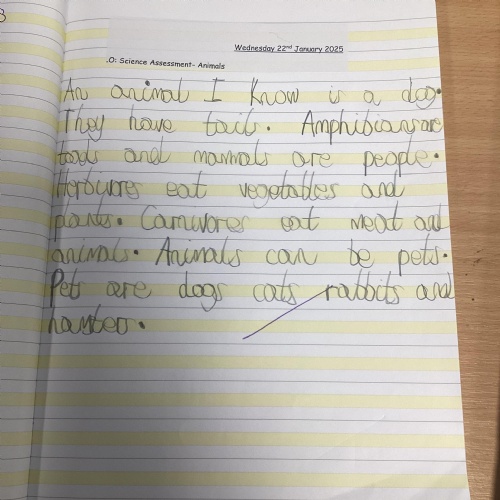 3
Wednesday 22nd January 2025
.O: Science Assessment- Animals
An animal I know is a dog.
They have tail. Amphibians are
toads and mammals are people.
Herbivores eat vegetables and
plants. Carnivores eat meat and
animals. Animals can be pets.
Pets are dogs cats rabbits and
hamster.